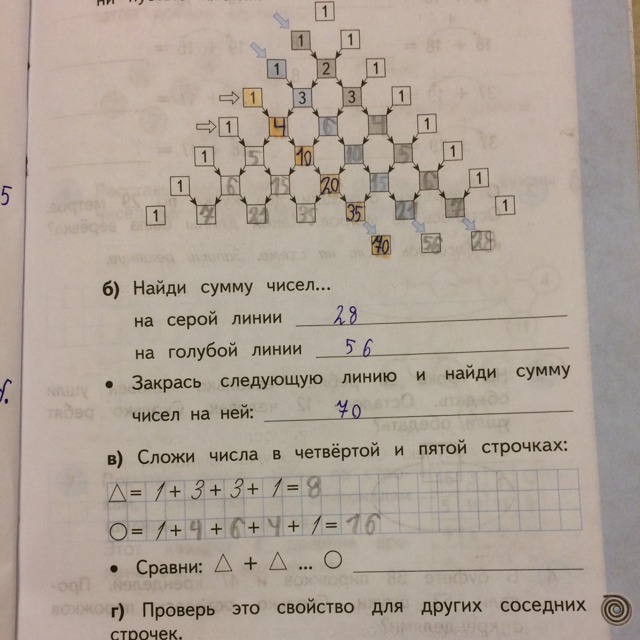 1
1 1
1 2 1
1 3 3 1
1 4 6 4 1
1 5 10 10 5 1
1 6 15 20 15 6 1
1 7 21 35 35 21 7 1
70 56 28
б) Найди сумму чисел...
на серой линии 28
на голубой линии 56
• Закрась следующую линию и найди сумму
чисел на ней: 70
в) Сложи числа в четвёртой и пятой строчках:
△ = 1 + 3 + 3 + 1 = 8
○ = 1 + 4 + 6 + 4 + 1 = 16
• Сравни: △ + △ ... ○
г) Проверь это свойство для других соседних
строчек.